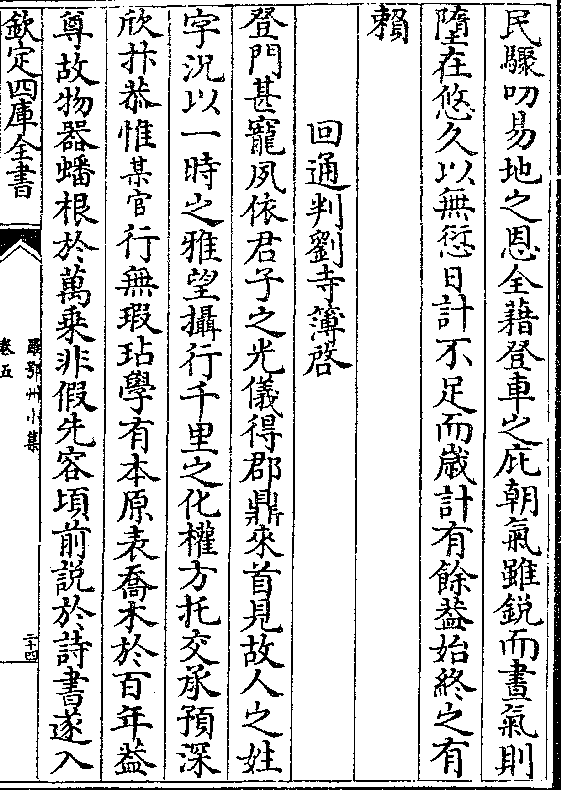 民驟叨易地之恩全藉登車之庇朝氣雖銳而晝氣則
墮在悠久以無愆日計不足而嵗計有餘葢始終之有
賴
回通判劉寺簿啓
登門甚寵夙依君子之光儀得郡鼎來首見故人之姓
字況以一時之雅望攝行千里之化權方托交承預深
欣抃恭惟某官行無瑕玷學有本原表喬木於百年葢
尊故物器蟠根於萬乗非假先容頃前說於詩書遂入
欽定四庫全書
羅鄂州小集
卷五
二十四